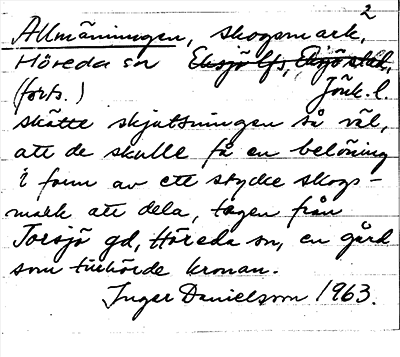 2
Allmänningen, skogsmark,
Höreda sn Eksjö lfs, Eksjö stad,
(forts.) Jönk. l.
skötte skjutsningen så väl,
att de skulle få en belöning
i form av ett stycke skogs-
mark att dela, tagen från
Torsjö gd, Höreda sn, en gård
som tillhörde kronan.
Inger Danielsson 1963.